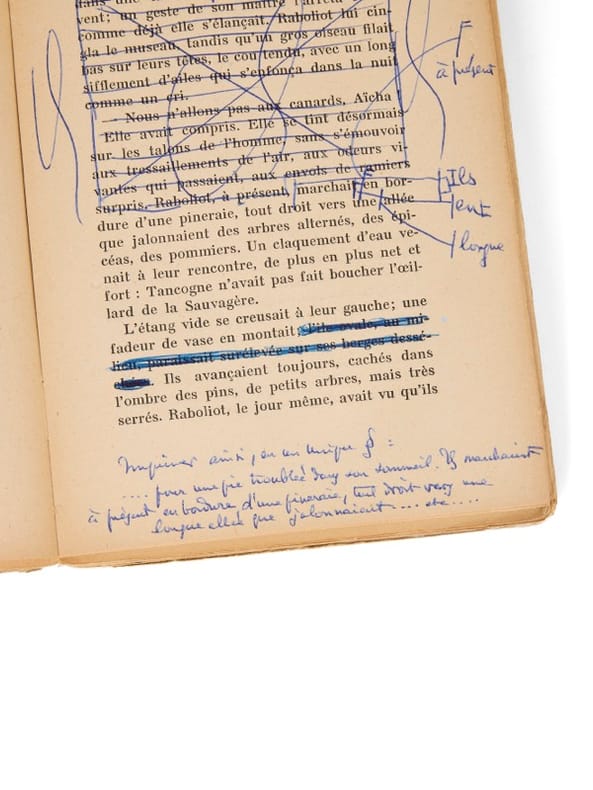 vent; un geste de son maître l'arrêta
comme déjà elle s'élançait. Raboliot lui cin-
gla le museau, tandis qu'un gros oiseau filait
bas sur leurs têtes, le cou tendu, avec un long
sifflement d'ailes qui s'enfonça dans la nuit
comme un cri.
— Nous n'allons pas aux canards, Aïcha
Elle avait compris. Elle se tint désormais
sur les talons de l'homme, sans s'émouvoir
aux tressaillements de l'air, aux odeurs vi-
vantes qui passaient, aux envols de ramiers
surpris. Raboliot, à présent, marchait en bor-
dure d'une pineraie, tout droit vers une allée
que jalonnaient des arbres alternés, des épi-
céas, des pommiers. Un claquement d'eau ve-
nait à leur rencontre, de plus en plus net et
fort : Tancogne n'avait pas fait boucher l'œil-
lard de la Sauvagère.
L'étang vide se creusait à leur gauche; une
fadeur de vase en montait; l'île ovale, au mi-
lieu, paraissait surélevée sur ses berges dessé-
chées. Ils avançaient toujours, cachés dans
l'ombre des pins, de petits arbres, mais très
serrés. Raboliot, le jour même, avait vu qu'ils
à présent
Ils
ent
longue
Imprimer ainsi, en un unique § :
.... pour une pie troublée dans son sommeil. Ils marchaient
à présent en bordure d'une pineraie, tout droit vers une
longue allée que jalonnaient .... etc ....